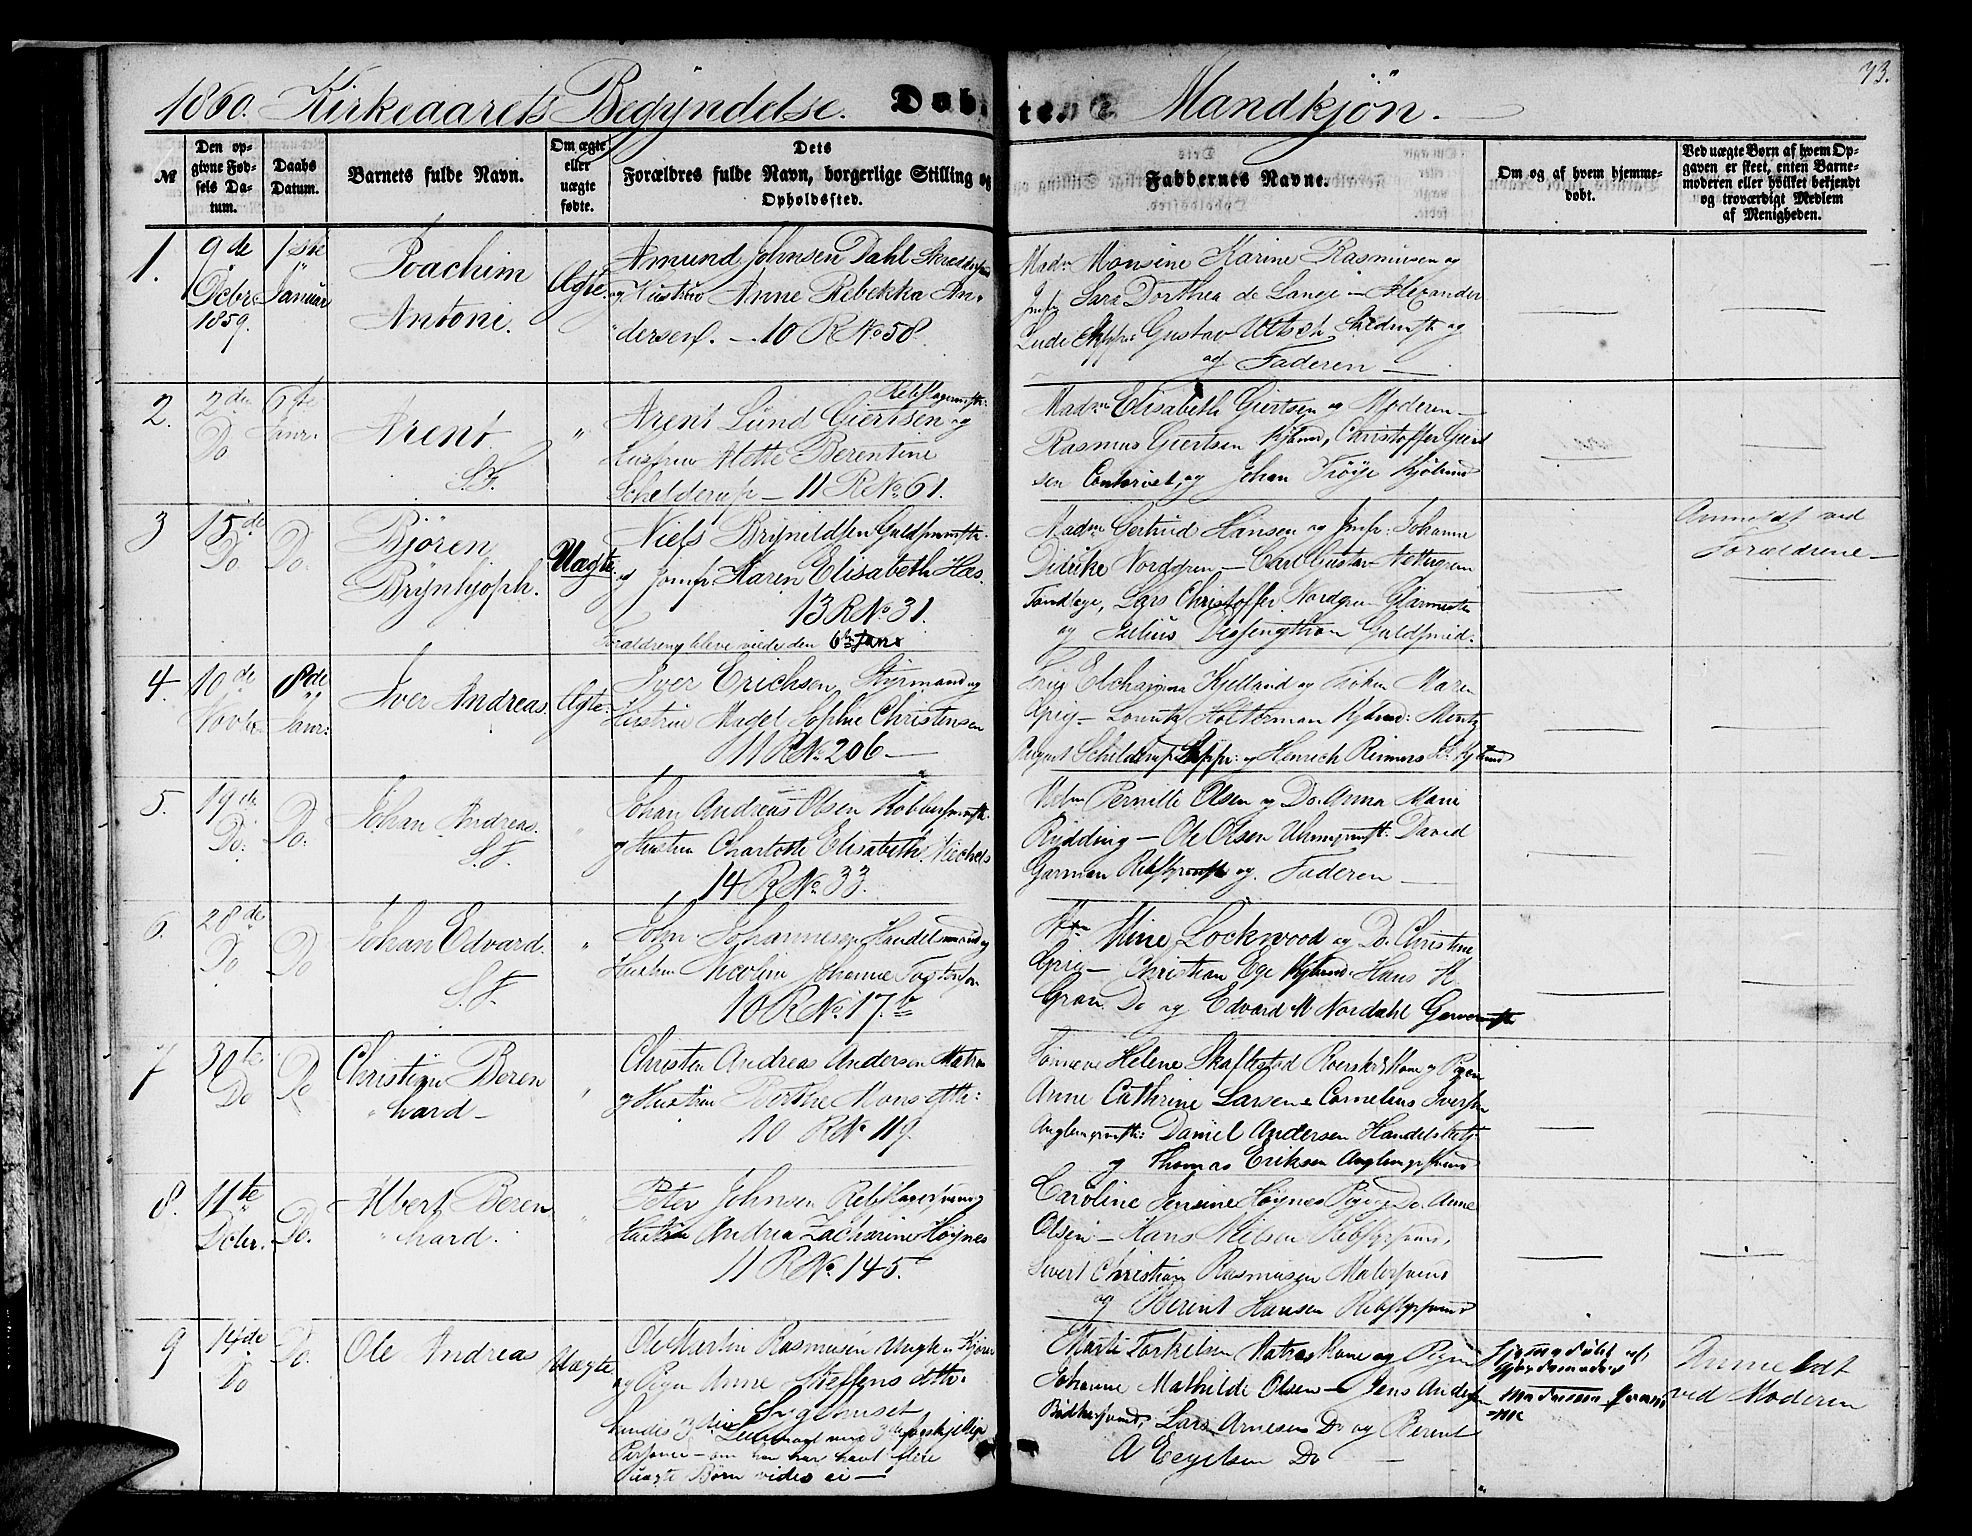 73.
1860. Kirkeaarets Begyndelse. Døb te Mandkjøn.
№
Den op-
givne Fød-
sels Da-
tum.
Daabs
Datum.
Barnets fulde Navn.
Om ægte
eller
uægte
fødte.
Dets
Forældres fulde Navn, borgerlige Stilling og
Opholdssted.
Faddernes Navne.
Om og af hvem hjemme-
døbt.
Ved uægte Børn af hvem Op-
gaven er skeet, enten Barne-
moderen eller hvilket bekjendt
og troværdigt Medlem
af Menigheden.
1.
9de
Octbr
1859.
1ste
Januar
Joachim
Antoni.
Ægte.
Amund Johnsen Dahl
og Hustru Anne Rebekka An-
dersen. — 10 R No 58.
Madm Monsine Karine Rasmusen og
Jmf Sara Dorthea de Lange — Alexander
Lude Skppr: Gustav og
og Faderen —
2.
2den
Do
6te
Janr.
Arent
S.F.
"
Rebslagermstr:
Arent Lund Giertsen og
Hustru Mette Berentine
Schelderup — 11 R No 61.
Madm Elisabeth Giertsen og Moderen —
Rasmus Giertsen Kjbmd, Christoffer Giert
sen Contorist, og Johan Trøye Kjøbmd
3
15de
Do
Do.
Bjøren
Brynhjoph.
Uægte.
Niels Brynildsen Guldsmmstr.
og Jomfr Karen Elisabeth Has.
13 R No 31.
Forældrene bleve viede den 6te Janr
Madm Gertrud Hansen og Jmfr: Johanne
Didrike Nordgren — Carl Gustav
Tandlæge, Lars Christoffer Nordgren Glarmester
og Julius Guldsmid:
Anmeldt ved
Forældrene —
4
10de
Novbr
8de
Janr:
Iver Andreas.
Ægte.
Iver Erichsen Styrmand og
Hustru Magel Sophie Christensen
11 R No 206 —
Kjelland og Frøken Maren
Grig — Lorentz Holterman Kjbmd: Mentz
August Schilderup Skppr: og Henrich Reimers Kjbmd
5.
19de
Do:
Do.
Johan Andreas.
S.F.
"
Johan Andreas Olsen Kobbersmmstr
og Hustru Charlotte Elisabeth Michels
14 R No 33.
Mdm Pernille Olsen og Do. Anna Marie
Rydding — Ole Olsen Uhrmmstr: David
Garman Rebslgrmstr og Faderen —
6.
28de
Do
Do
Johan Edvard.
S.F.
"
John Johannesen Handelsmand og
Hustru Nicoline Johanne
10 R No 17.b
Mdm Mine Lockwood og Do. Christine
Grig — Christian Ege Kjbmd. Hans K.
Gran Do og Edvard M Nordahl Garvermstr
7
30te
Do
Do
Christian Beren
hard —
"
Christen Andreas Andersen Matros
og Hustru Berthe Monsdtr:
10 R No 119.
Konerne Helene Skaftestad Roerskrl Kone og Pigen
Anne Cathrine Larsen — Cornelius Iversen
Daniel Andersen Handelsbetj
og Thomas Eriksen
8.
11te
Dcbr.
Do.
Albert Beren
hard.
"
Peter Johnsen Rebslagersvend og
Hustru Andrea Zacharine Høynes
11 R No 145.
Caroline Jensine Høynes Pige og Do. Anne
Olsen — Hans Nilsen Rebslgrsvend,
Sivert Christian Rasmusen Malersvend
og Berent Hansen Rebslgrsvend
9
14de
Do
Do.
Ole Andreas
Uægte
Ole Martin Rasmusen Ungkrl
og Pigen Anne Steffensdttr.
Sygehuset
hendes 3die Leiermaal med 3de forskjellige
Personer — om han har havt flere
Uægte Børn vides ei —
Marte Torkelsen Matros Kone og Pigen
Johanne Mathilde Olsen — Jens Andersen
Bødkersvend, Lars Arnesen Do og Berent
A Eegelsen Do —
Hjemmedøbt af
Gjordemoderen
Madamme
Anmeldt
ved Moderen